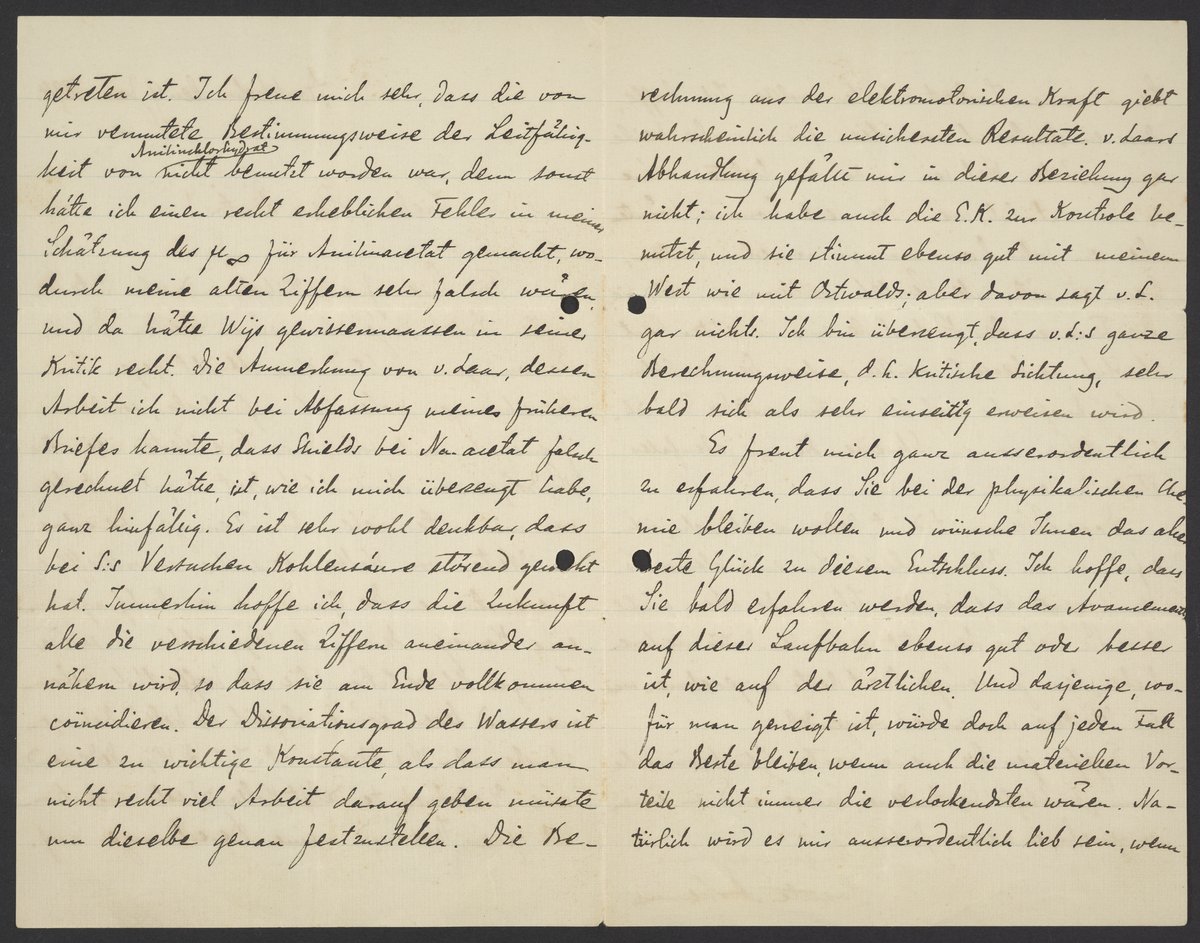 getreten ist. Ich freue mich sehr, dass die von
mir vermutete Bestimmungsweise der Leitfähig-
Anilinchlorhydrat
keit von nicht benutzt worden war, denn sonst
hätte ich einen recht erheblichen Fehler in meiner
Schätzung des μ∞ für Anilinacetat gemacht, wo-
durch meine alten Ziffern sehr falsch wären,
und da hätte Wijs gewissermaassen in seiner
Kritik recht. Die Anmerkung von v. Laar, dessen
Arbeit ich nicht bei Abfassung meines früheren
Briefes kannte, dass Shields bei Na-acetat falsch
gerechnet hätte, ist, wie ich mich überzeugt habe,
ganz hinfällig. Es ist sehr wohl denkbar, dass
bei S:s Versuchen Kohlensäure störend gewirkt
hat. Immerhin hoffe ich, dass die Zukunft
alle die verschiedenen Ziffern aneinander an-
nähern wird, so dass sie am Ende vollkommen
coïncidieren. Der Dissociationsgrad des Wassers ist
eine zu wichtige Konstante, als dass man
nicht recht viel Arbeit darauf geben müsste
um dieselbe genau festzustellen. Die Be-
rechnung aus der elektromotorischen Kraft giebt
wahrscheinlich die unsichersten Resultate. v. Laars
Abhandlung gefällt mir in dieser Beziehung gar
nicht; ich habe auch die E.K. zur Kontrole be-
nutzt, und sie stimmt ebenso gut mit meinem
Wert wie mit Ostwalds; aber davon sagt v. L.
gar nichts. Ich bin überzeugt, dass v. L:s ganze
Berechnungsweise, d. h. kritische Sichtung, sehr
bald sich als sehr einseitig erweisen wird.
Es freut mich ganz ausserordentlich
zu erfahren, dass Sie bei der physikalischen Che-
mie bleiben wollen und wünsche Ihnen das aller
beste Glück zu diesem Entschluss. Ich hoffe, dass
Sie bald erfahren werden, dass das Avancement
auf dieser Laufbahn ebenso gut oder besser
ist, wie auf der ärztlichen. Und dasjenige, wo-
für man geneigt ist, würde doch auf jeden Fall
das Beste bleiben, wenn auch die materiellen Vor-
teile nicht immer die verlockendsten wären. Na-
türlich wird es mir ausserordentlich lieb sein, wenn